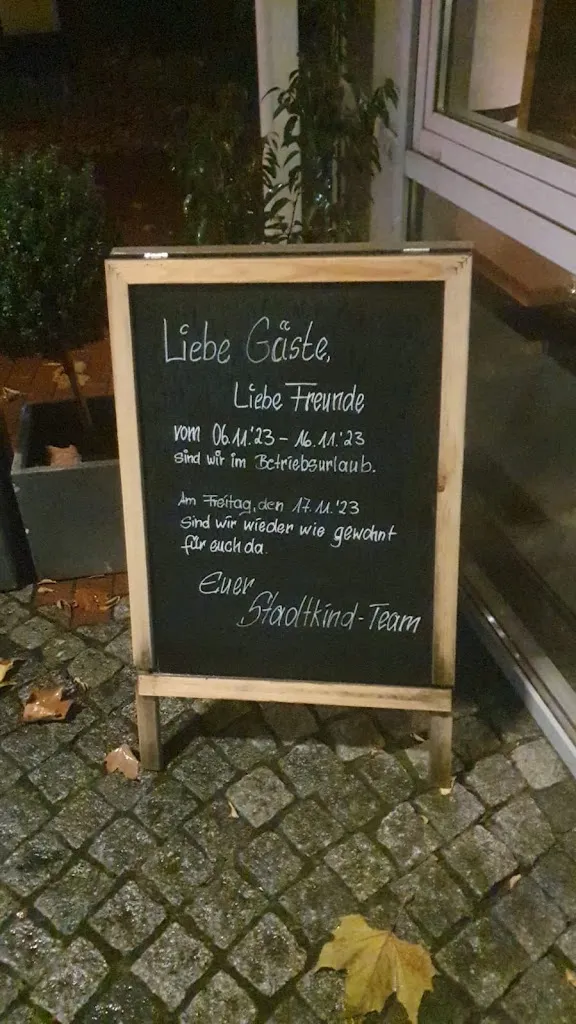 Liebe Gäste,
Liebe Freunde
vom 06.11.'23 – 16.11.'23
sind wir im Betriebsurlaub.
Am Freitag, den 17.11.'23
sind wir wieder wie gewohnt
für euch da.
Euer
Stadtkind-Team